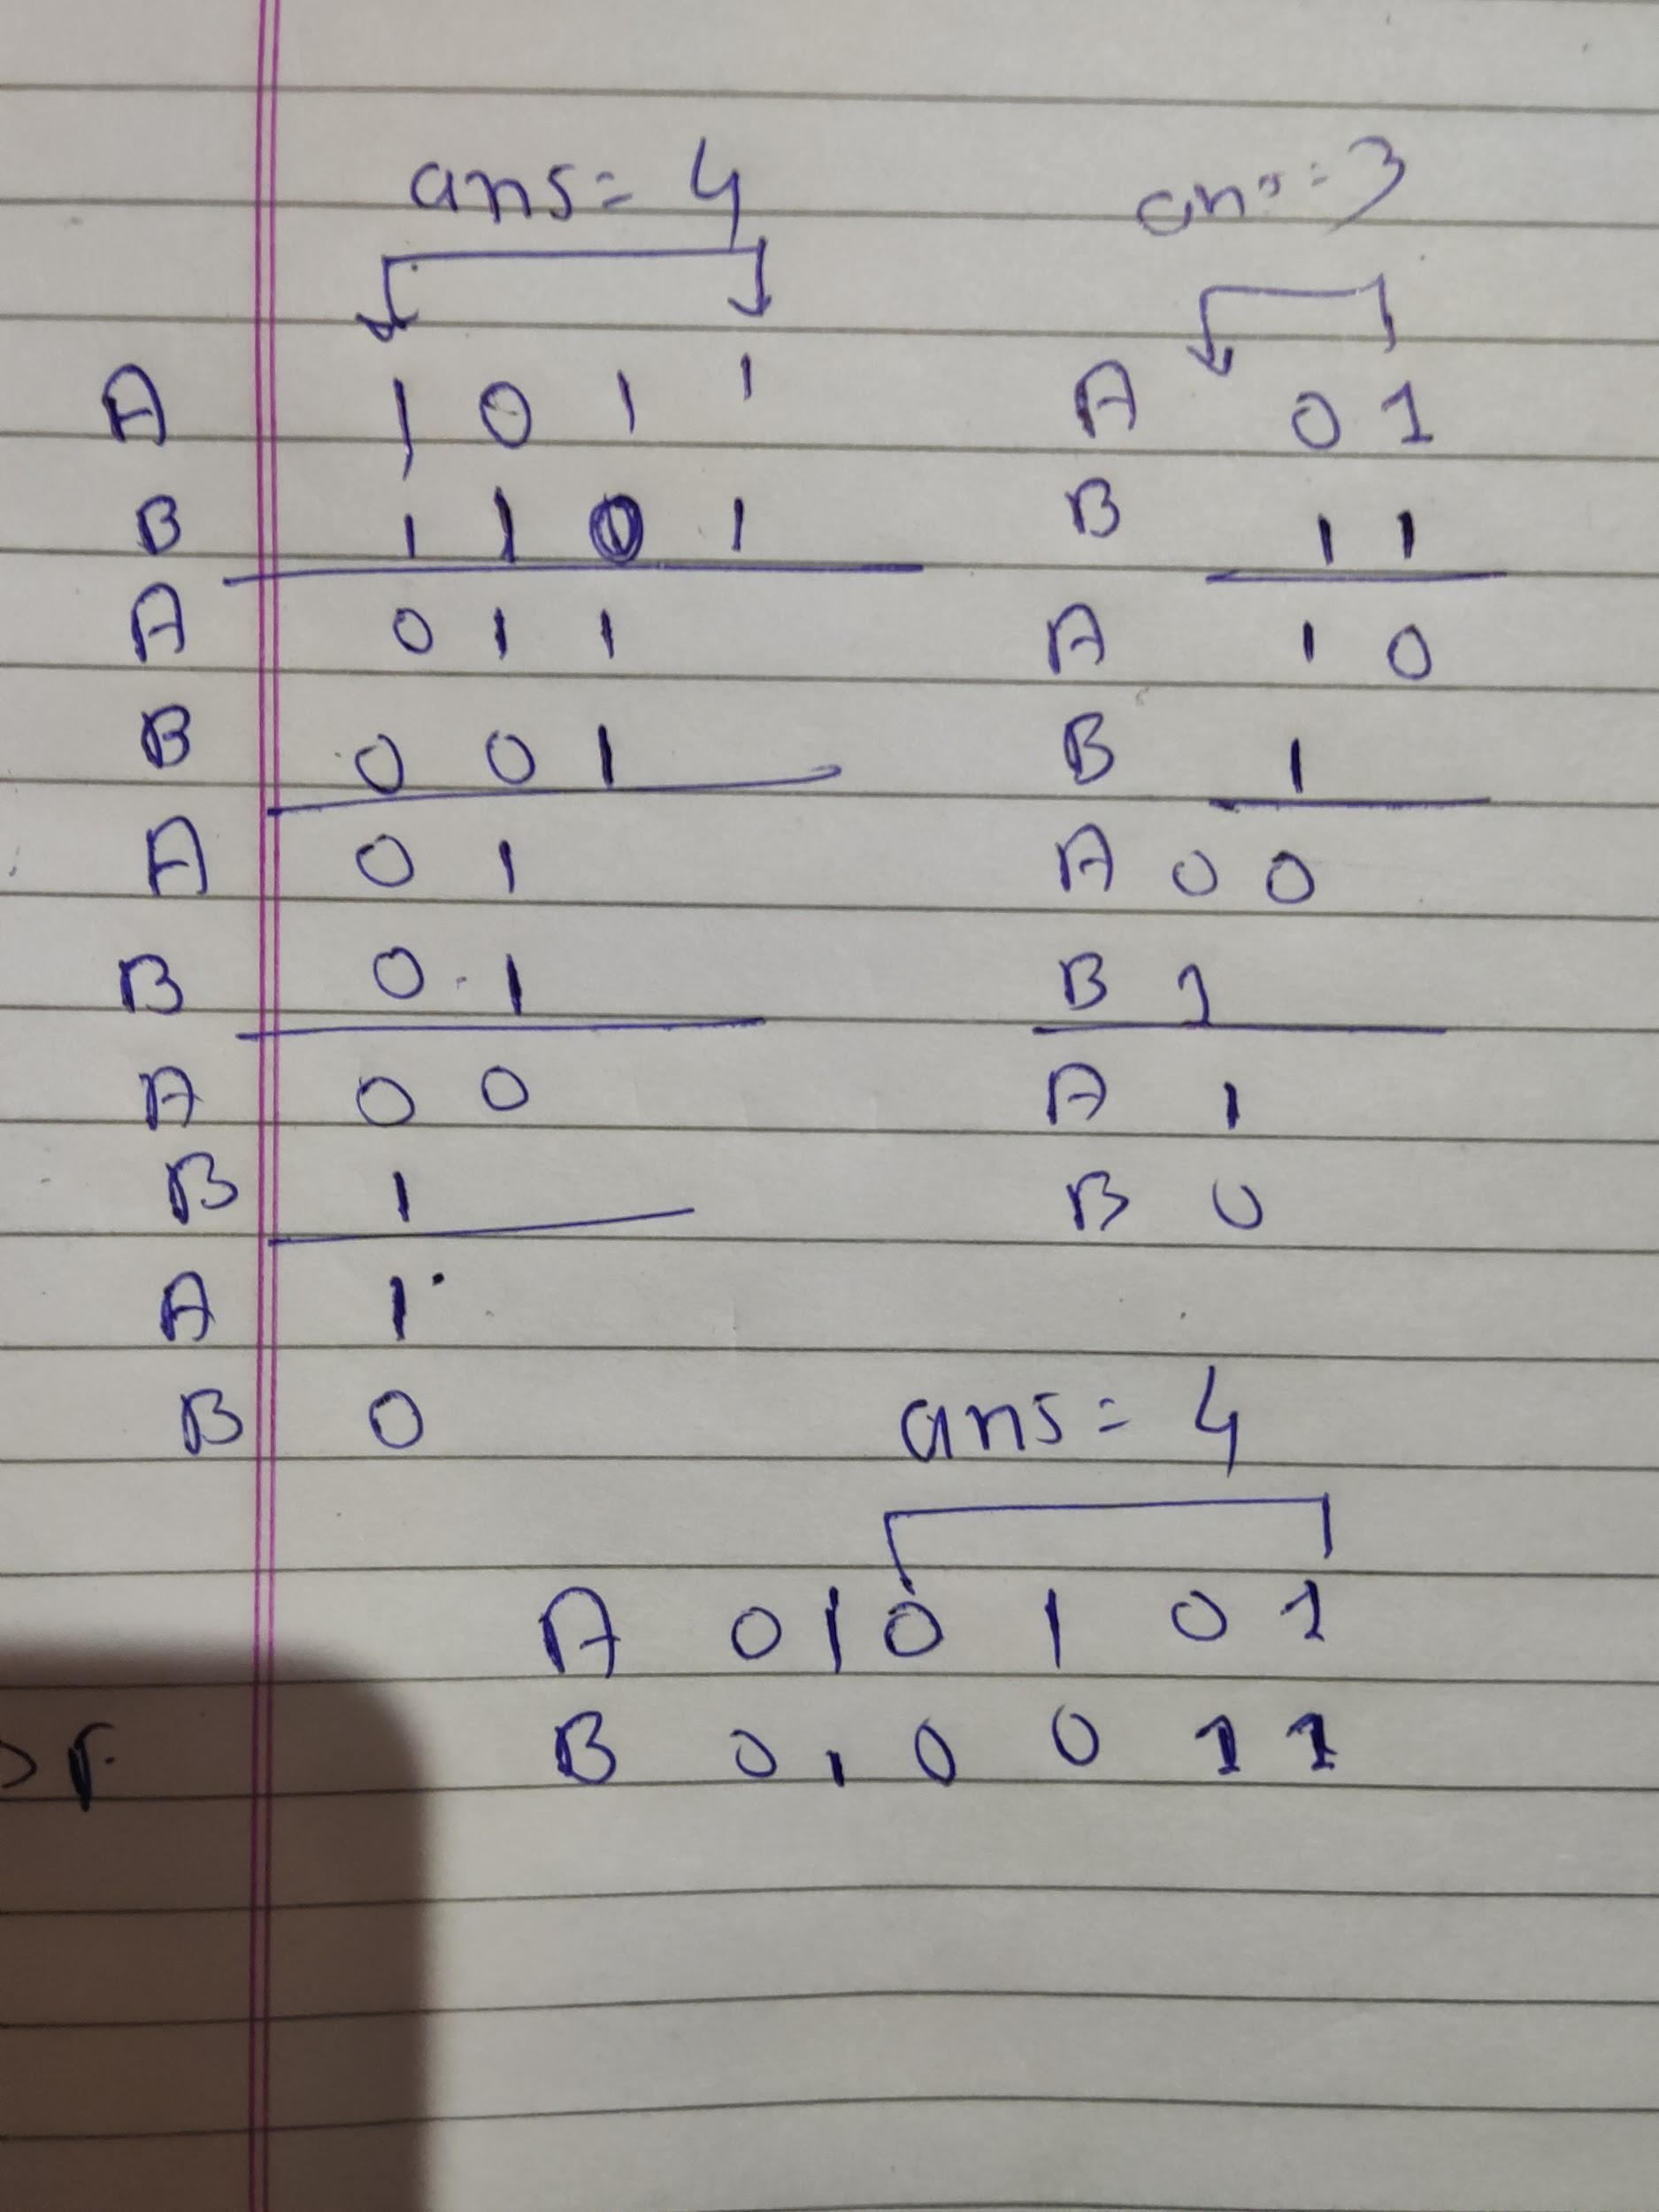 ans = 4
ans = 3
A 1 0 1 1
B 1 1 0 1
A 0 1 1
B 0 0 1
A 0 1
B 0 1
A 0 0
B 1
A 1
B 0
A 0 1
B 1 1
A 1 0
B 1
A 0 0
B 1
A 1
B 0
ans = 4
A 0 1 0 1 0 1
B 0 1 0 0 1 1